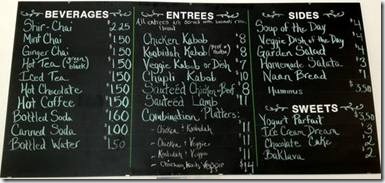 BEVERAGES
Shir Chai $2.25
Mint Chai $1.50
Ginger Chai $1.50
Hot Tea (green black) $1.50
Iced Tea $1.50
Hot Chocolate $1.50
Hot Coffee $1.50
Bottled Soda $1.60
Canned Soda $1.00
Bottled Water 1.50
ENTREES
All entrees are served with
Chicken Kabob $8
Kofididah Kabob $7
Veggie Kabob or Dish $7
Chapli Kabob $10
Sauteed Chicken or Beef $8
Sauteed Lamb $11
Combination Platters:
Chicken + Kofididah
Chicken + Veggie
Kofididah + Veggie
$14
SIDES
Soup of the Day $4
Veggie Dish of the Day
Garden Salad
Homemade Salata
Naan Bread
Hummus $3.50
SWEETS
Yogurt Parfait $3.50
Ice Cream Dream $3
Chocolate Cake $2
Baklava $2